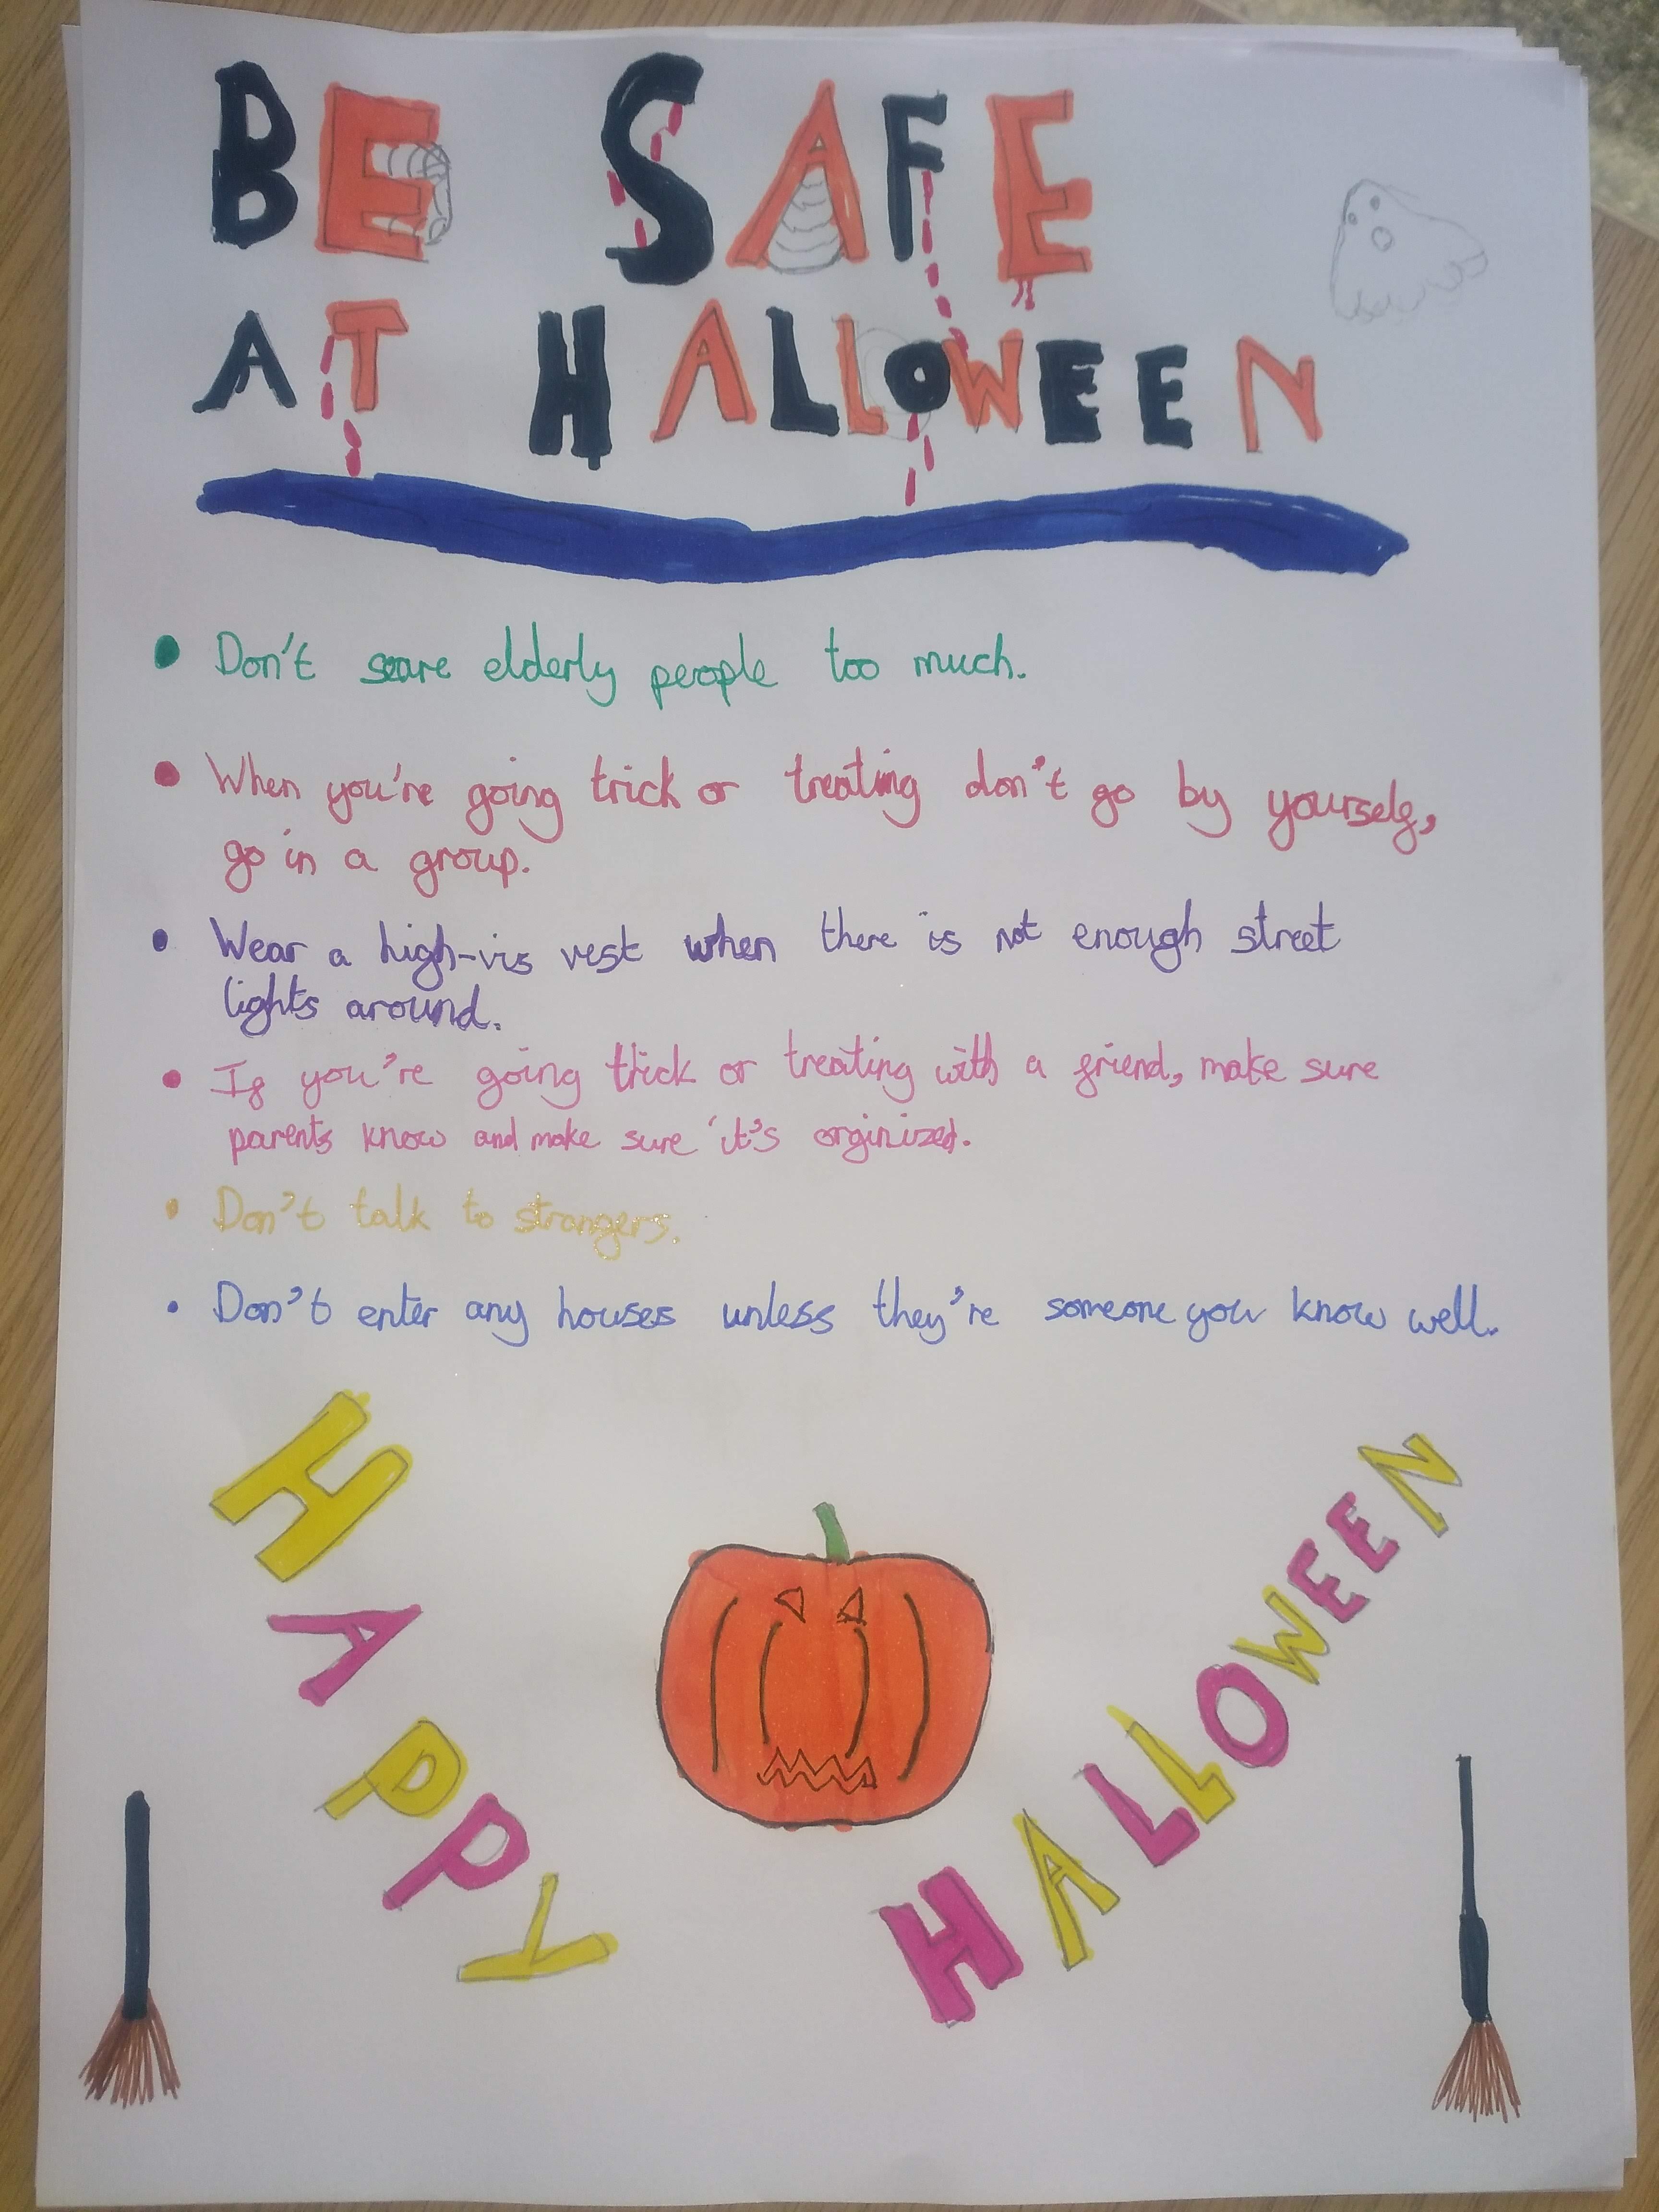 BE SAFE
AT HALLOWEEN
• Don't scare elderly people too much.
• When you're going trick or treating don't go by yourself,
go in a group.
• Wear a high-vis vest when there is not enough street
lights around.
• If you're going trick or treating with a friend, make sure
parents know and make sure it's orginized.
• Don't talk to strangers.
• Don't enter any houses unless they're someone you know well.
HAPPY
HALLOWEEN